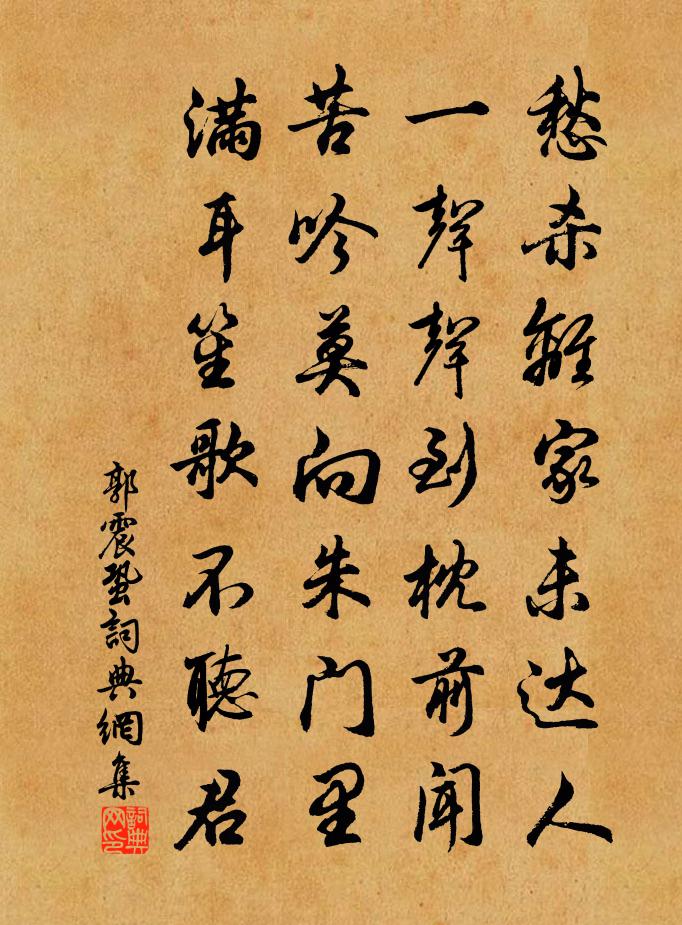 愁杀離家未达人
一聲聲到枕前闻
苦吟莫向朱门里
滿耳笙歌不聽君
郭震蛩詞典網集
詞典
网印